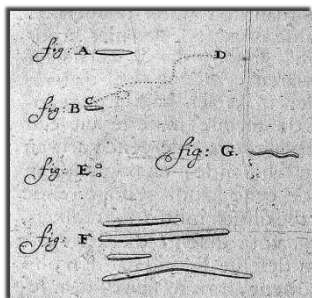 fig: A
D
fig: B C.
fig: G.
fig: E
fig: F